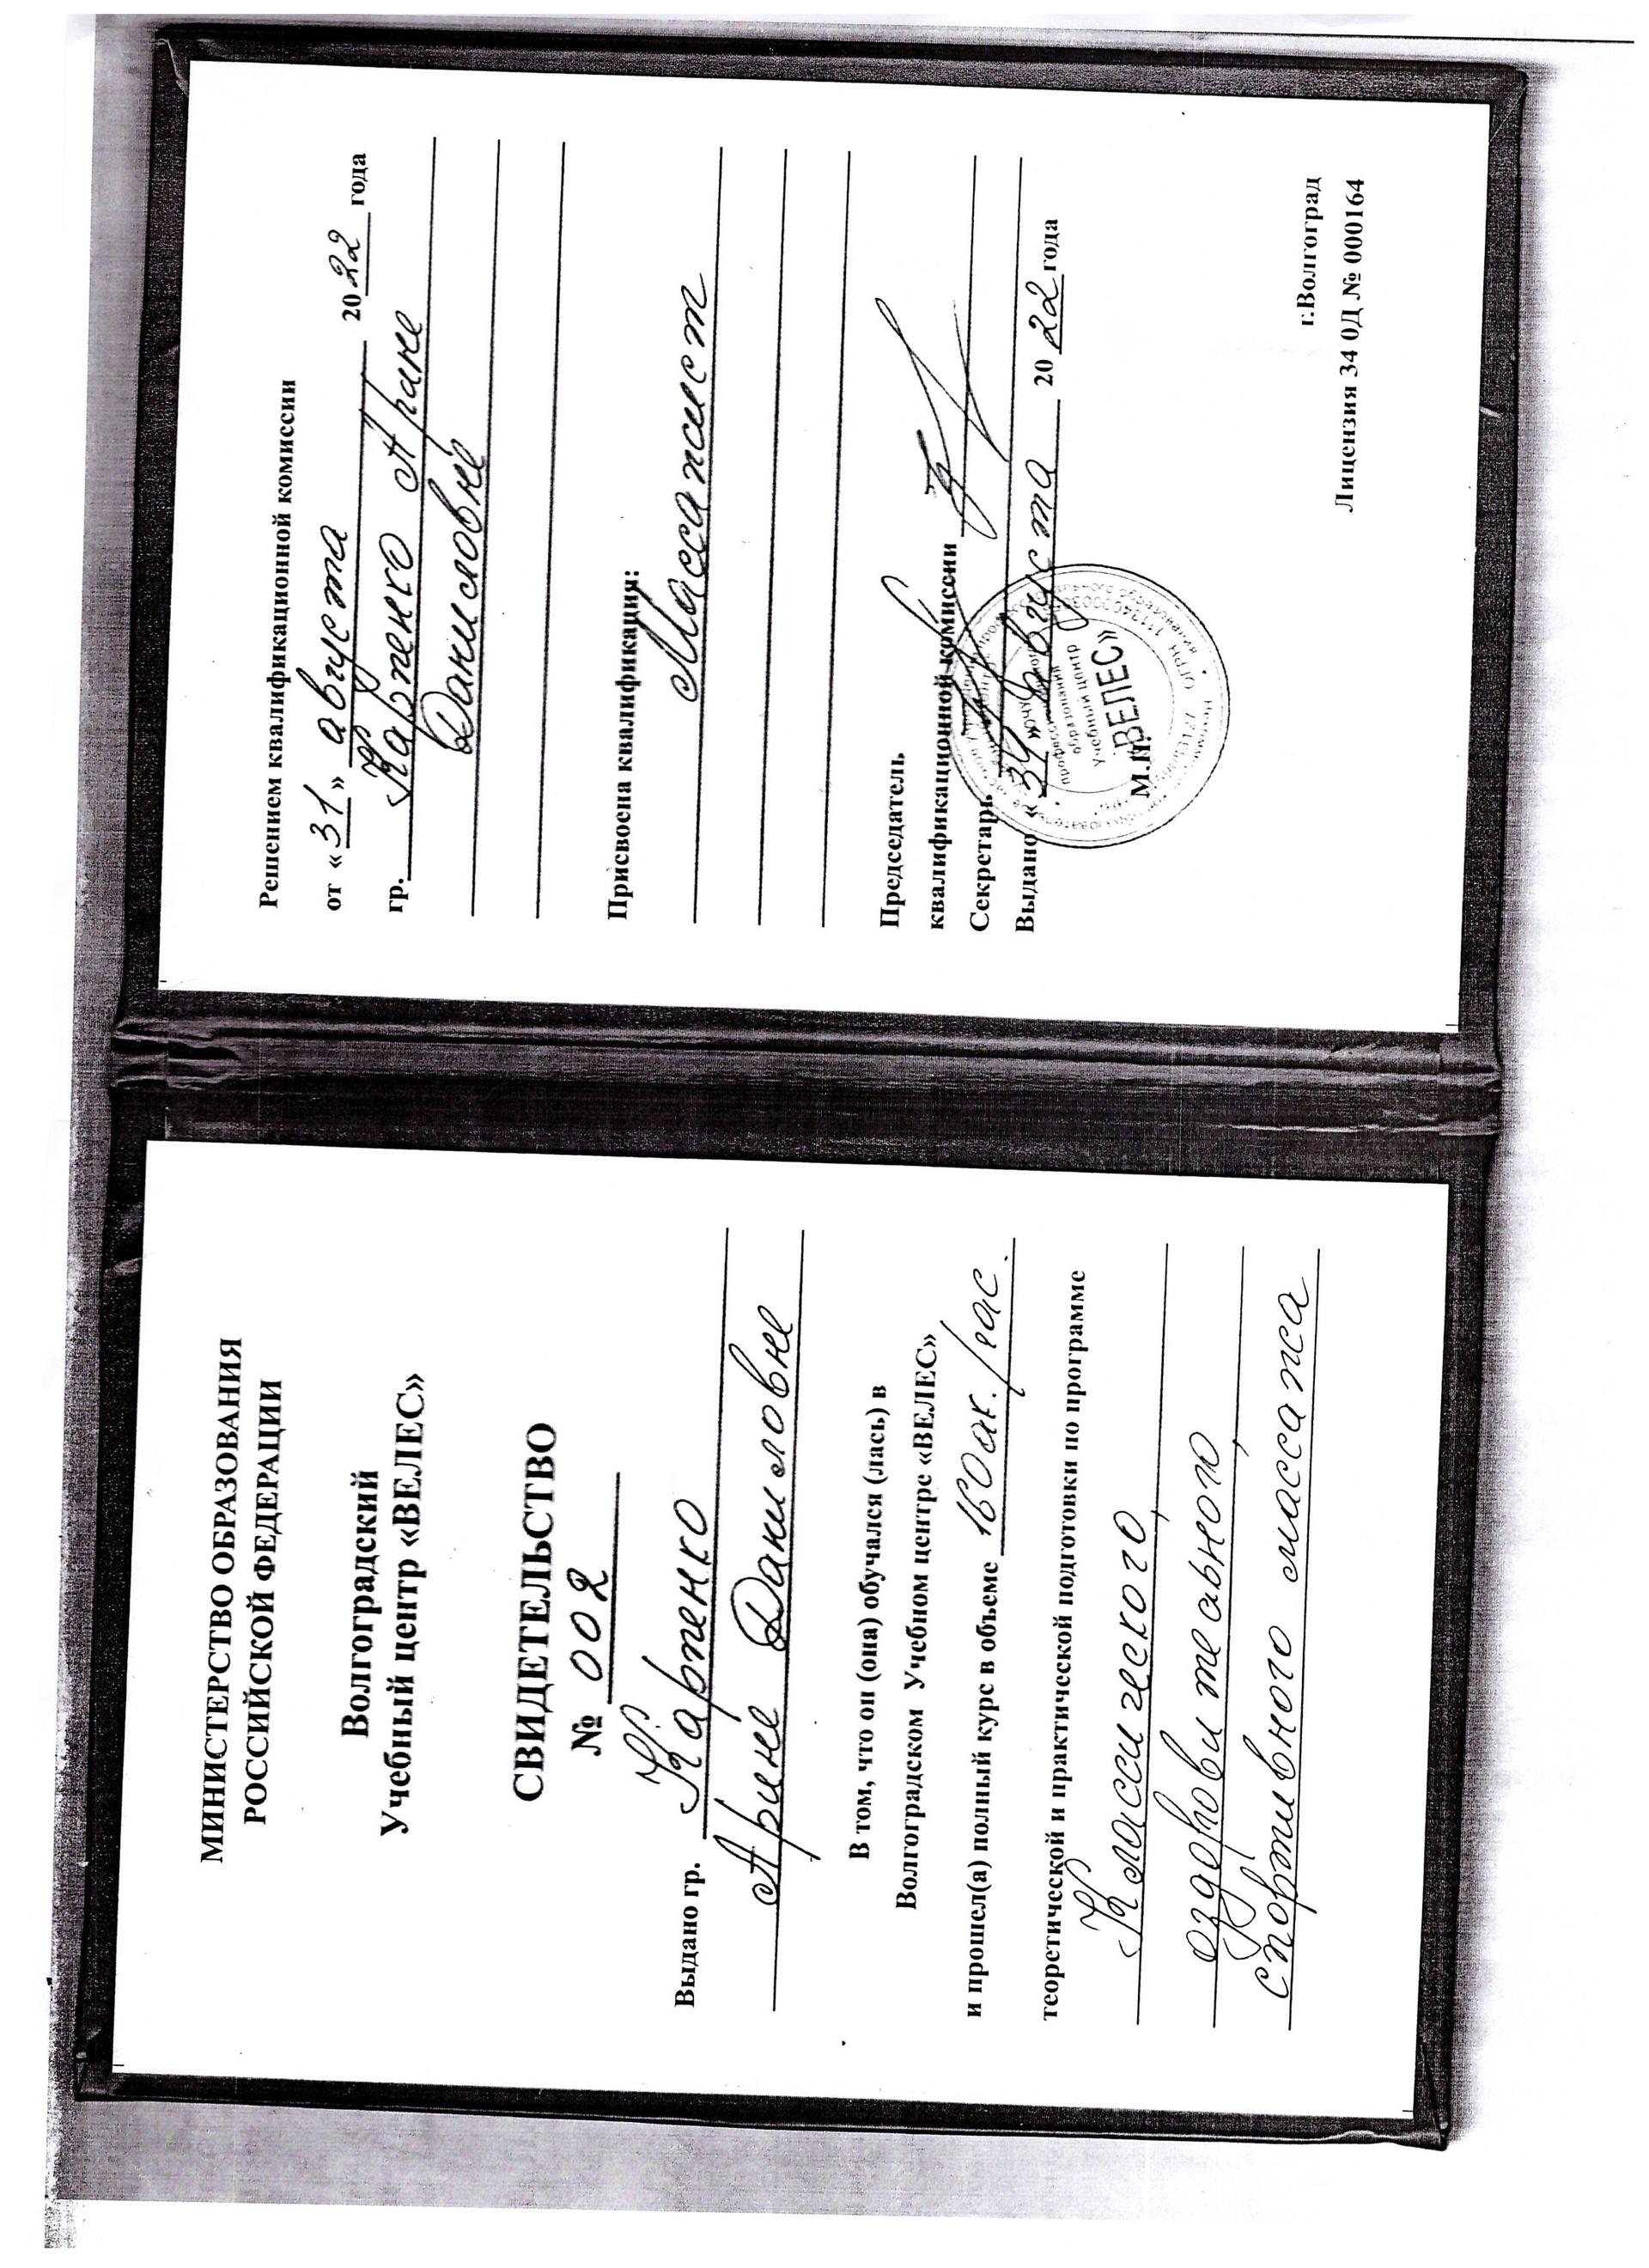 МИНИСТЕРСТВО ОБРАЗОВАНИЯ
РОССИЙСКОЙ ФЕДЕРАЦИИ
Волгоградский
Учебный центр «ВЕЛЕС»
СВИДЕТЕЛЬСТВО
№ 002
Выдано гр. Карпенко
Арине Даниловне
В том, что он (она) обучался (лась) в
Волгоградском Учебном центре «ВЕЛЕС»
и прошел(а) полный курс в объеме 160 ак./час.
теоретической и практической подготовки по программе
Классического,
оздоровительного,
спортивного массажа
Решением квалификационной комиссии
от «31» августа 2022 года
гр. Карпенко Арине
Даниловне
Присвоена квалификация:
Массажист
Председатель
квалификационной комиссии
Секретарь
Выдано «31» августа 2022 года
образования
Учебный центр
«ВЕЛЕС»
М.П.
г.Волгоград
Лицензия 34 ОД № 000164